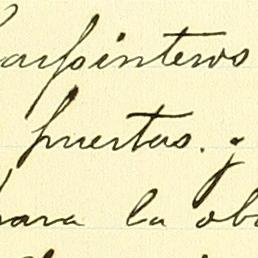 Carpinteros
puertas. y
para la ob